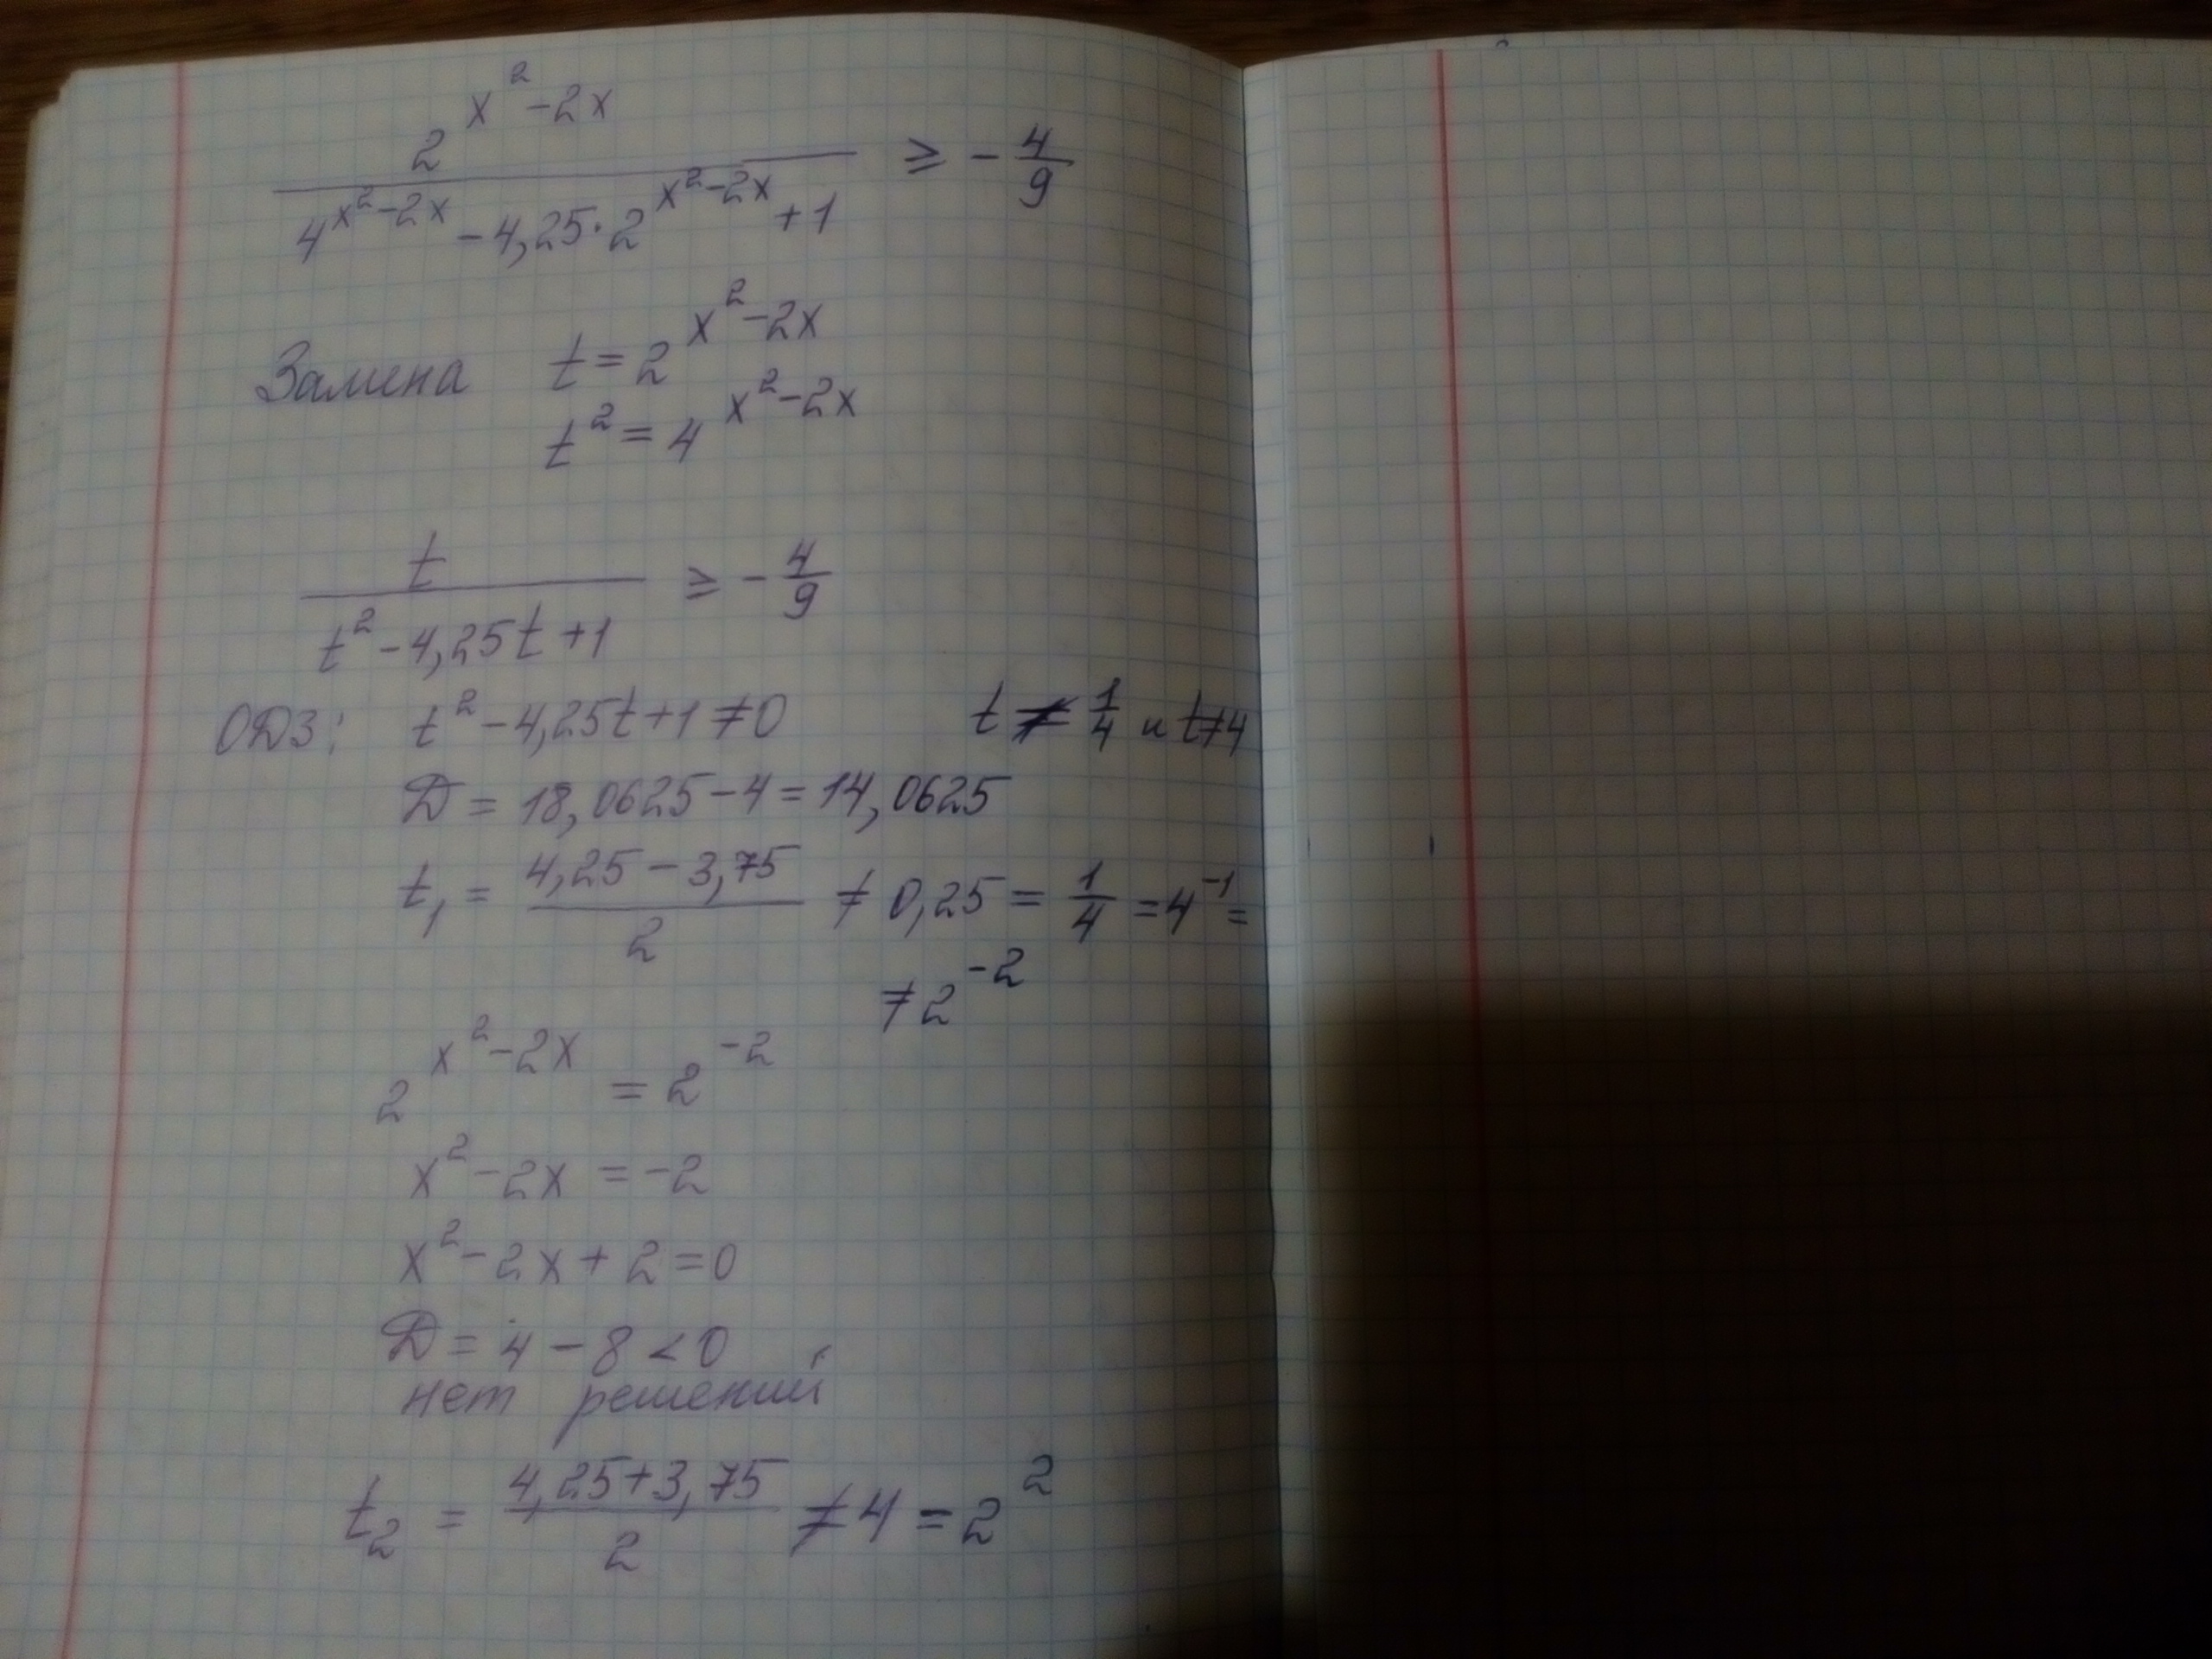 2^(x²-2x) / (4^(x²-2x) - 4,25·2^(x²-2x) + 1) ≥ - 4/9
Замена t = 2^(x²-2x)
t² = 4^(x²-2x)
t / (t² - 4,25t + 1) ≥ - 4/9
ОДЗ: t² - 4,25t + 1 ≠ 0 t ≠ 1/4 и t ≠ 4
D = 18,0625 - 4 = 14,0625
t₁ = (4,25 - 3,75) / 2 ≠ 0,25 = 1/4 = 4⁻¹ =
≠ 2⁻²
2^(x²-2x) = 2⁻²
x² - 2x = -2
x² - 2x + 2 = 0
D = 4 - 8 < 0
нет решений
t₂ = (4,25 + 3,75) / 2 ≠ 4 = 2²